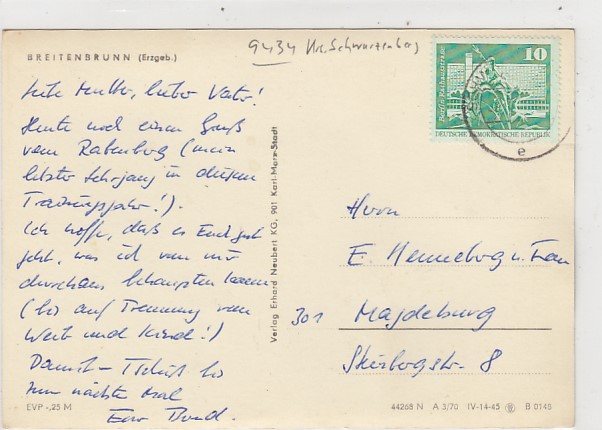 BREITENBRUNN (Erzgeb.)
9434 Krs. Schwarzenberg
10
Berlin, Rathausstraße
DEUTSCHE DEMOKRATISCHE REPUBLIK
e
Liebe Mutter, lieber Vater!
Heute noch einen Gruß
vom Rabenberg (mein
letzter Lehrgang in diesem
Trainingsjahr!).
Ich hoffe, daß es Euch gut
geht, was ich von mir
durchaus behaupten kann
(bis auf Trennung von
Weib und Kind!)
Damit – Tschüß bis
zum nächsten Mal
Euer
Verlag Erhard Neubert KG, 901 Karl-Marx-Stadt
Herrn
E. Henneberg u. Frau
301 Magdeburg
8
EVP -,25 M
44268 N A 3/70 IV-14-45 B 0145